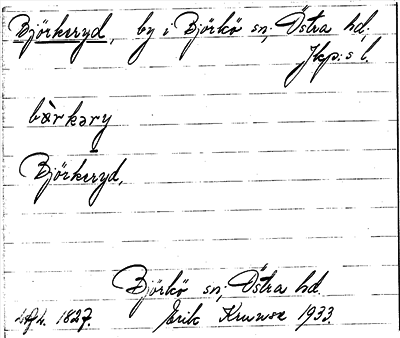 Björkeryd, by i Björkö sn, Östra hd.
Jkp:s l.
bæ̀rkəry
Björkeryd,
Björkö sn, Östra hd.
1827. Erik Kruuse 1933.